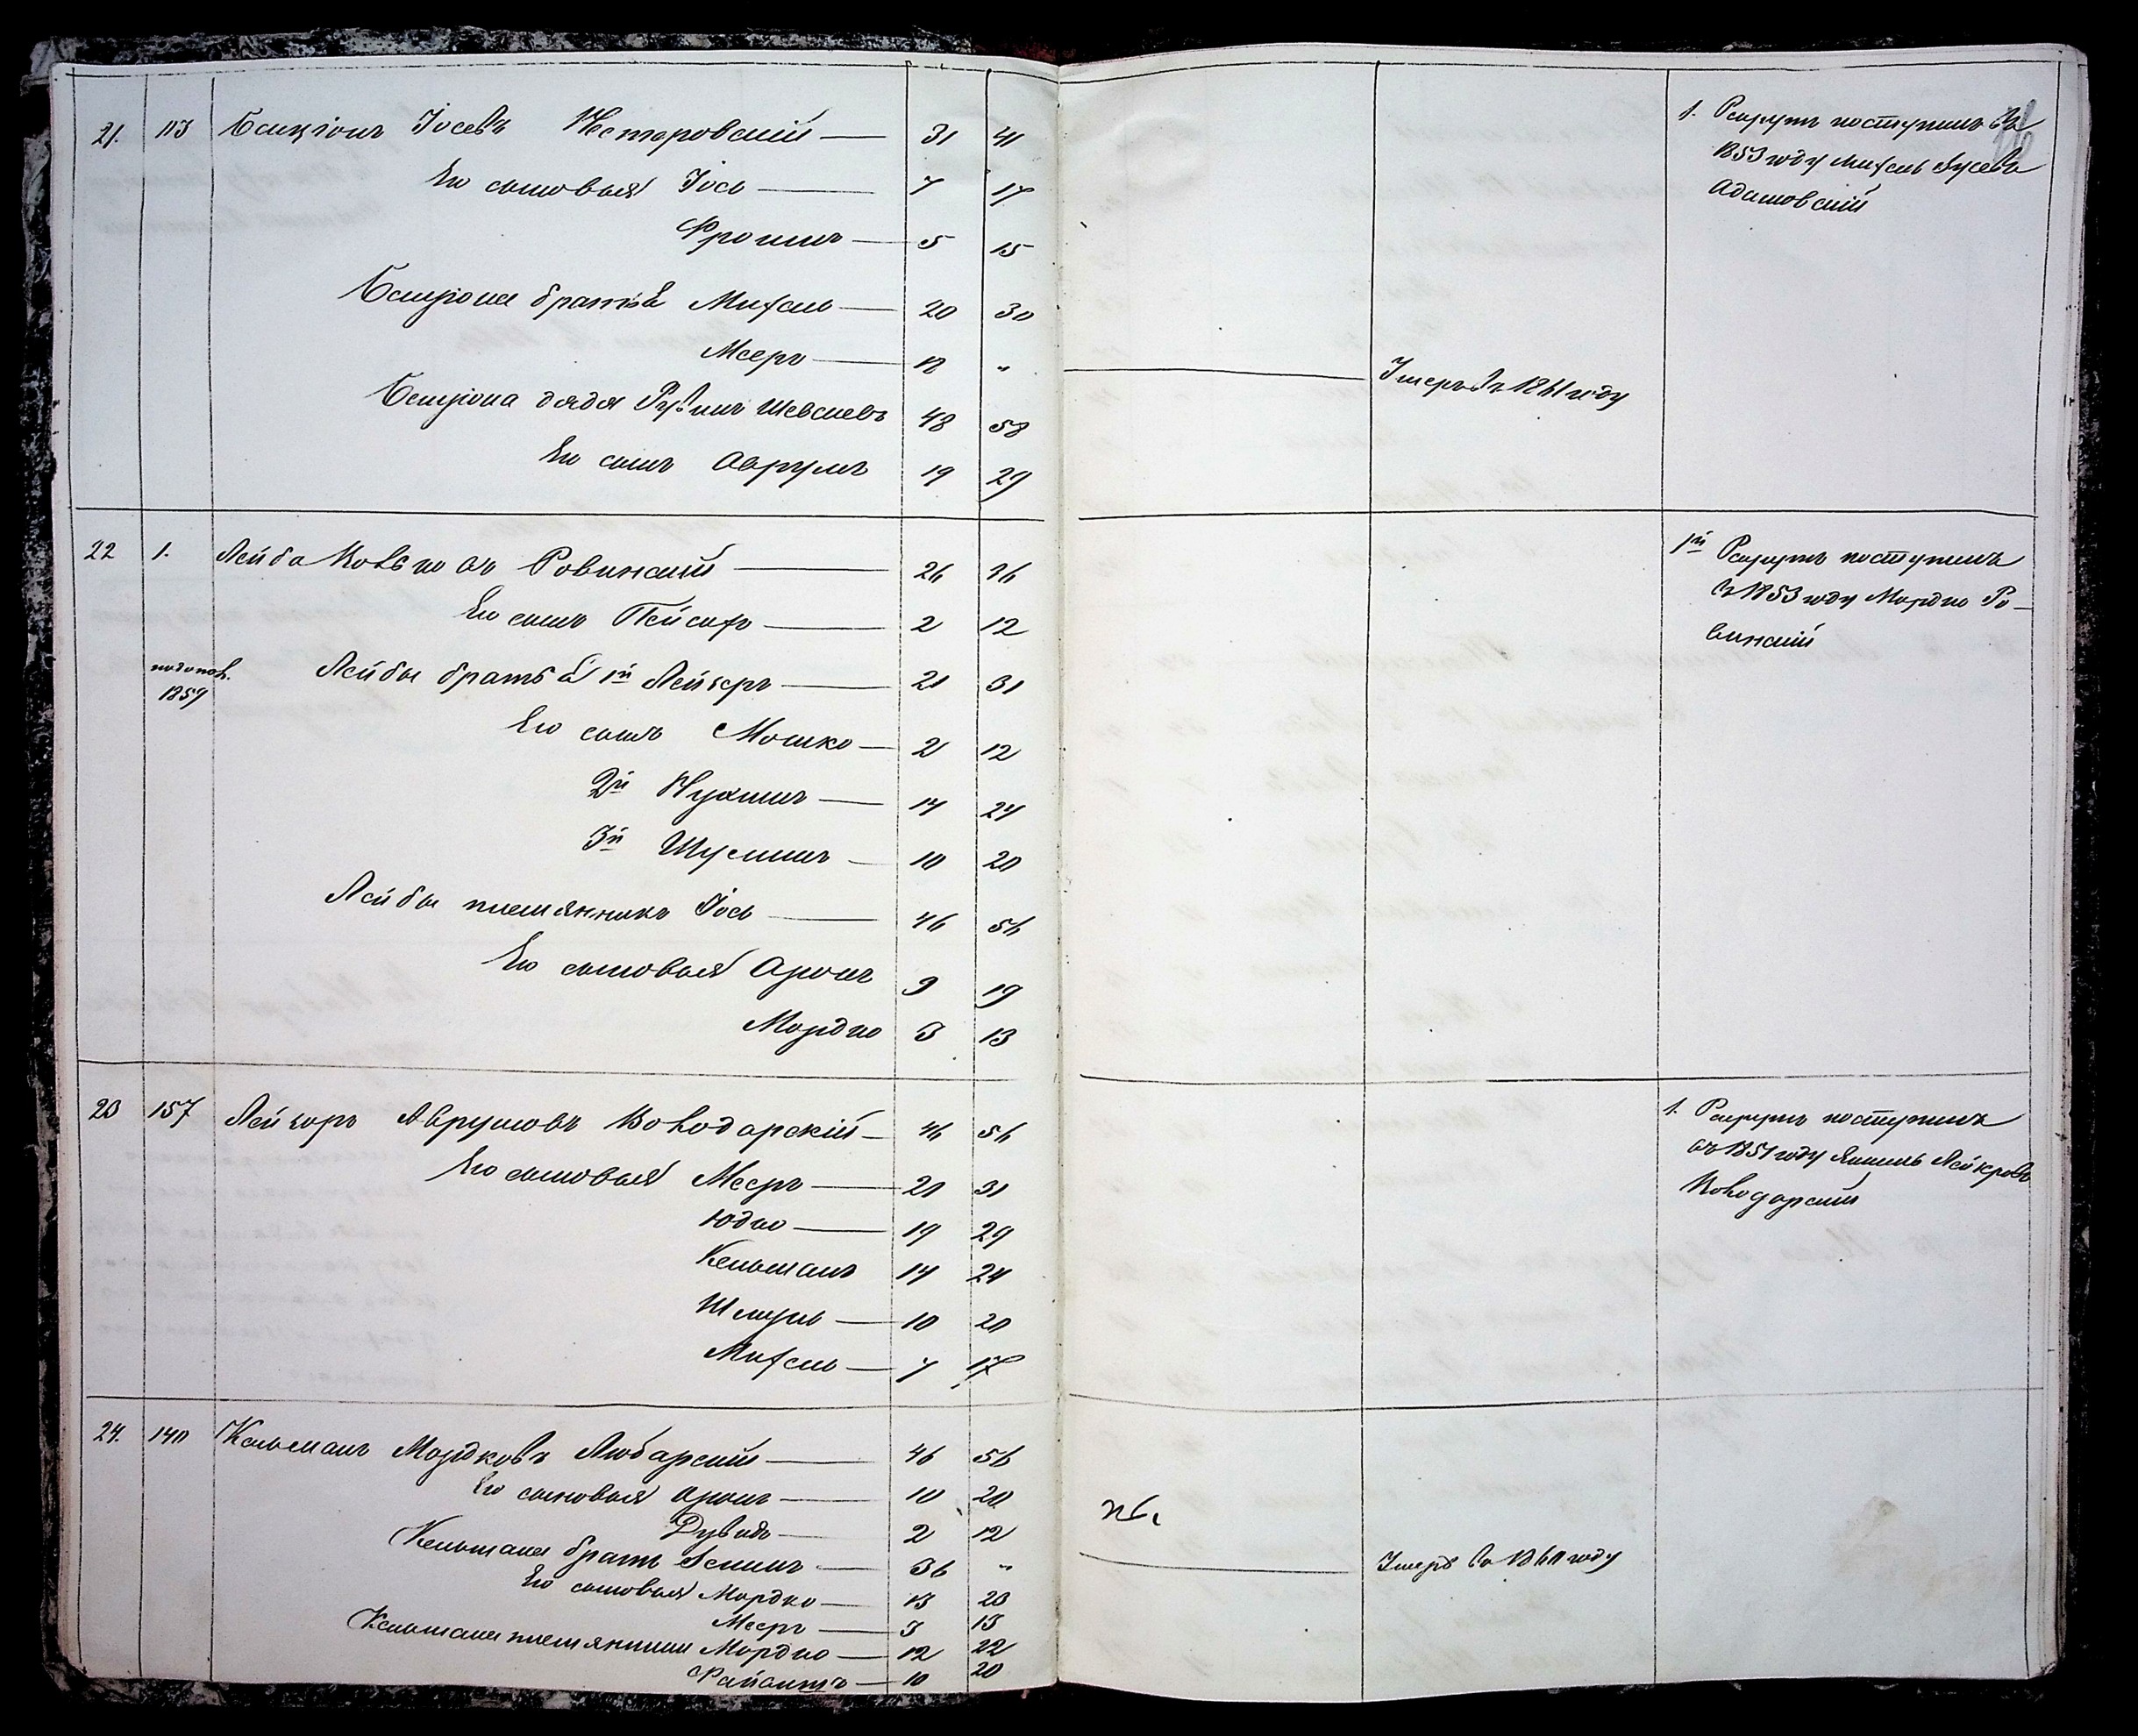 21. 113 Бенціонъ Іосевъ Нестеровскій — 31 41
Его сыновья Іось — 7 17
Фроимъ — 5 15
Бенціона братья Михель — 20 30
Мееръ — 12 „
Бенціона дядя Рувинъ Шевелевъ 48 58
Его сынъ Аврумъ 19 29
Умеръ въ 1861 году
1. Рекрутъ поступилъ въ
1853 году Михель Іусевъ
Адамовскій
22 1. Лейба Ровинскій — 26 36
Его сынъ Пейсахъ — 2 12
1859
Лейбы братья 1й Лейзеръ — 21 31
Его сынъ Мошко — 2 12
2й Нухимъ — 14 24
3й Шулимъ — 10 20
Лейбы племянникъ Іось — 46 56
Его сыновья Аронъ 9 19
Мордко 3 13
1й Рекрутъ поступилъ
въ 1853 году Мордко Ро-
винскій
23 157 Лейзоръ Аврумовъ Володарскій — 46 56
Его сыновья Мееръ — 21 31
Юдко — 19 29
Кельманъ 14 24
Шмуль — 10 20
Михель — 7 17
1. Рекрутъ поступилъ
въ 1851 году Лейзеровъ
Володарскій
24. 140 Кельманъ Мордковъ Любарскій — 46 56
Его сыновья Аронъ — 10 20
Дувидъ — 2 12
Кельмана братъ — 36 „
Его сыновья Мордко — 13 23
Мееръ — 3 13
Кельмана племянники Мордко — 12 22
— 10 20
Умеръ въ 1860 году